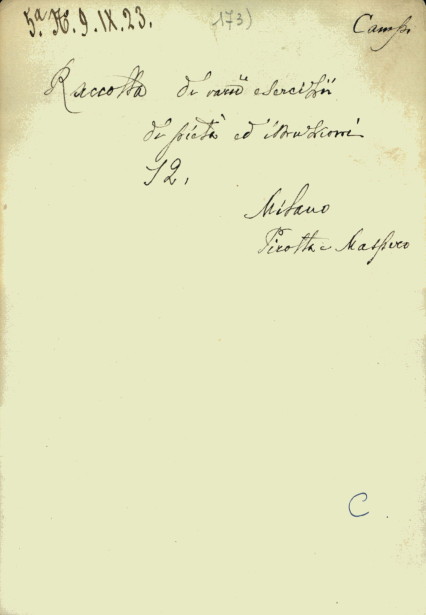 5.ª H. 9. IX. 23. 173) Campi
Raccolta di varii esercizii
di pietà ed istruzioni
12,
Milano
Pirotta e Maspero
C